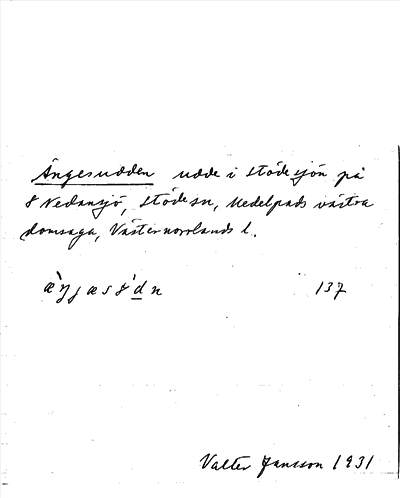 Ängesudden udde i Stödesjön på
8 Nedansjö, Stöde sn, Medelpads västra
domsaga, Västernorrlands l.
137
Valter Jansson 1931